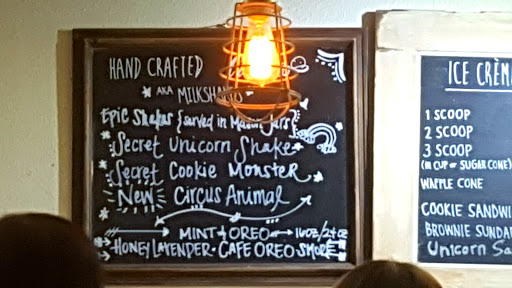 HAND CRAFTED
AKA MILKSHAKES
Epic Shakes {served in Mason Jars}
Secret Unicorn Shake
Secret Cookie Monster
New Circus Animal
MINT & OREO 16oz/24oz
HONEY LAVENDER • CAFE OREO SMORE
ICE CRÈM
1 SCOOP
2 SCOOP
3 SCOOP
(IN CUP OR SUGAR CONE)
WAFFLE CONE
COOKIE SANDWI
BROWNIE SUNDA
Unicorn Sa